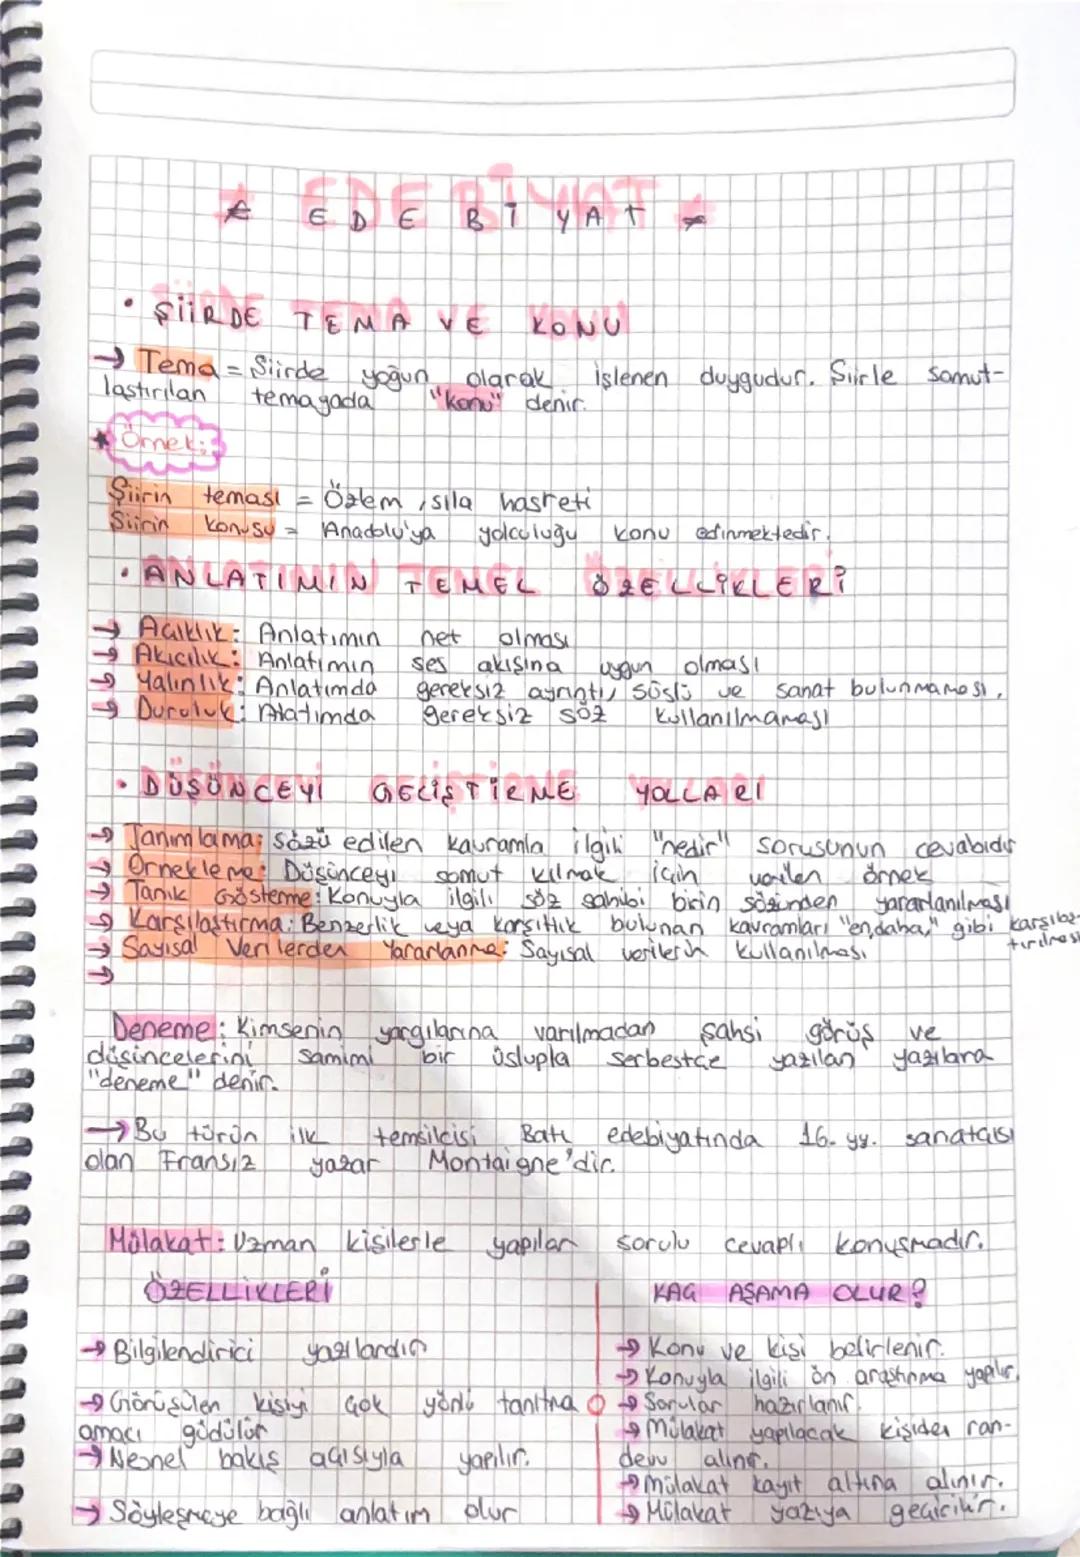 ★ EDEBİYAT ★
• ŞİİRDE TEMA VE KONU
→ Tema = Şiirde yoğun olarak işlenen duygudur. Şiirle somut-
laştırılan temayada "konu" denir.
★ Örnek:
Şiirin teması = Özlem, sıla hasreti
Şiirin konusu = Anadolu'ya yolculuğu konu edinmektedir.
• ANLATIMIN TEMEL ÖZELLİKLERİ
→ Açıklık: Anlatımın net olması
→ Akıcılık: Anlatımın ses akışına uygun olması
→ Yalınlık: Anlatımda gereksiz ayrıntı, süslü ve sanat bulunmaması.
→ Duruluk: Alatımda gereksiz söz kullanılmaması
• DÜŞÜNCEYİ GELİŞTİRME YOLLARI
→ Tanımlama: Sözü edilen kavramla ilgili "nedir" sorusunun cevabıdır
→ Örnekleme: Düşünceyi somut kılmak için verilen örnek
→ Tanık Gösterme: Konuyla ilgili söz sahibi birin sözünden yararlanılması
→ Karşılaştırma: Benzerlik veya karşıtlık bulunan kavramları "en,daha," gibi karşılaş-
tırılması
→ Sayısal Verilerden Yararlanma: Sayısal verilerin kullanılması.
→
Deneme: Kimsenin yargılarına varılmadan şahsi görüş ve
düşüncelerini samimi bir üslupla serbestçe yazılan yazılara
"deneme" denir.
→ Bu türün ilk temsilcisi Batı edebiyatında 16. yy. sanatçısı
olan Fransız yazar Montaigne'dir.
Mülakat: Uzman kişilerle yapılan sorulu cevaplı konuşmadır.
ÖZELLİKLERİ
→ Bilgilendirici yazılardır
→ Görüşülen kişiyi çok yönlü tanıtma
amacı güdülür
→ Nesnel bakış açısıyla yapılır.
→ Söyleşmeye bağlı anlatım olur
KAÇ AŞAMA OLUR?
→ Konu ve kişi belirlenir.
→ Konuyla ilgili ön araştırma yapılır.
→ Sorular hazırlanır.
→ Mülakat yapılacak kişiden ran-
devu alınır.
→ Mülakat kayıt altına alınır.
→ Mülakat yazıya geçirilir.